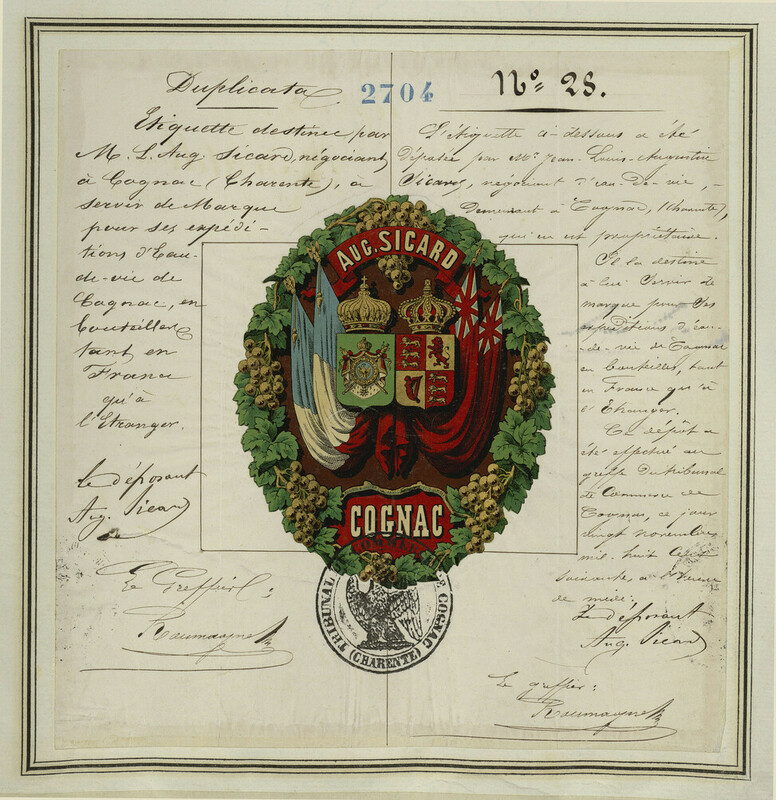 Duplicata
2704
Etiquette destinée par
M. L. Aug. Sicard, négociant
à Cognac (Charente), à
servir de Marque
pour ses expédi-
tions d'Eau-
de-vie de
Cognac, en
Bouteilles
tant en
France
qu'à
l'Etranger.
le déposant
Aug. Sicard
Le Greffier:
Nº 28.
L'étiquette ci-dessous a été
déposée par Mr Jean-Louis-Augustin
Sicard, négociant d'eau-de-vie, -
demeurant à Cognac, (Charente),
qui en est propriétaire.
Il la destine
à lui servir de
marque pour ses
expéditions d'eau-
de-vie de Cognac
en bouteilles, tant
en France qu'à
l'Etranger.
Ce dépôt a
été effectué au
greffe du tribunal
de Commerce de
Cognac, ce jour
vingt novembre
mil-huit cent
soixante, à l'heure
de midi.
Le déposant
Aug. Sicard
Le greffier:
AUG. SICARD
COGNAC
TRIBUNAL
COGNAC
(CHARENTE)